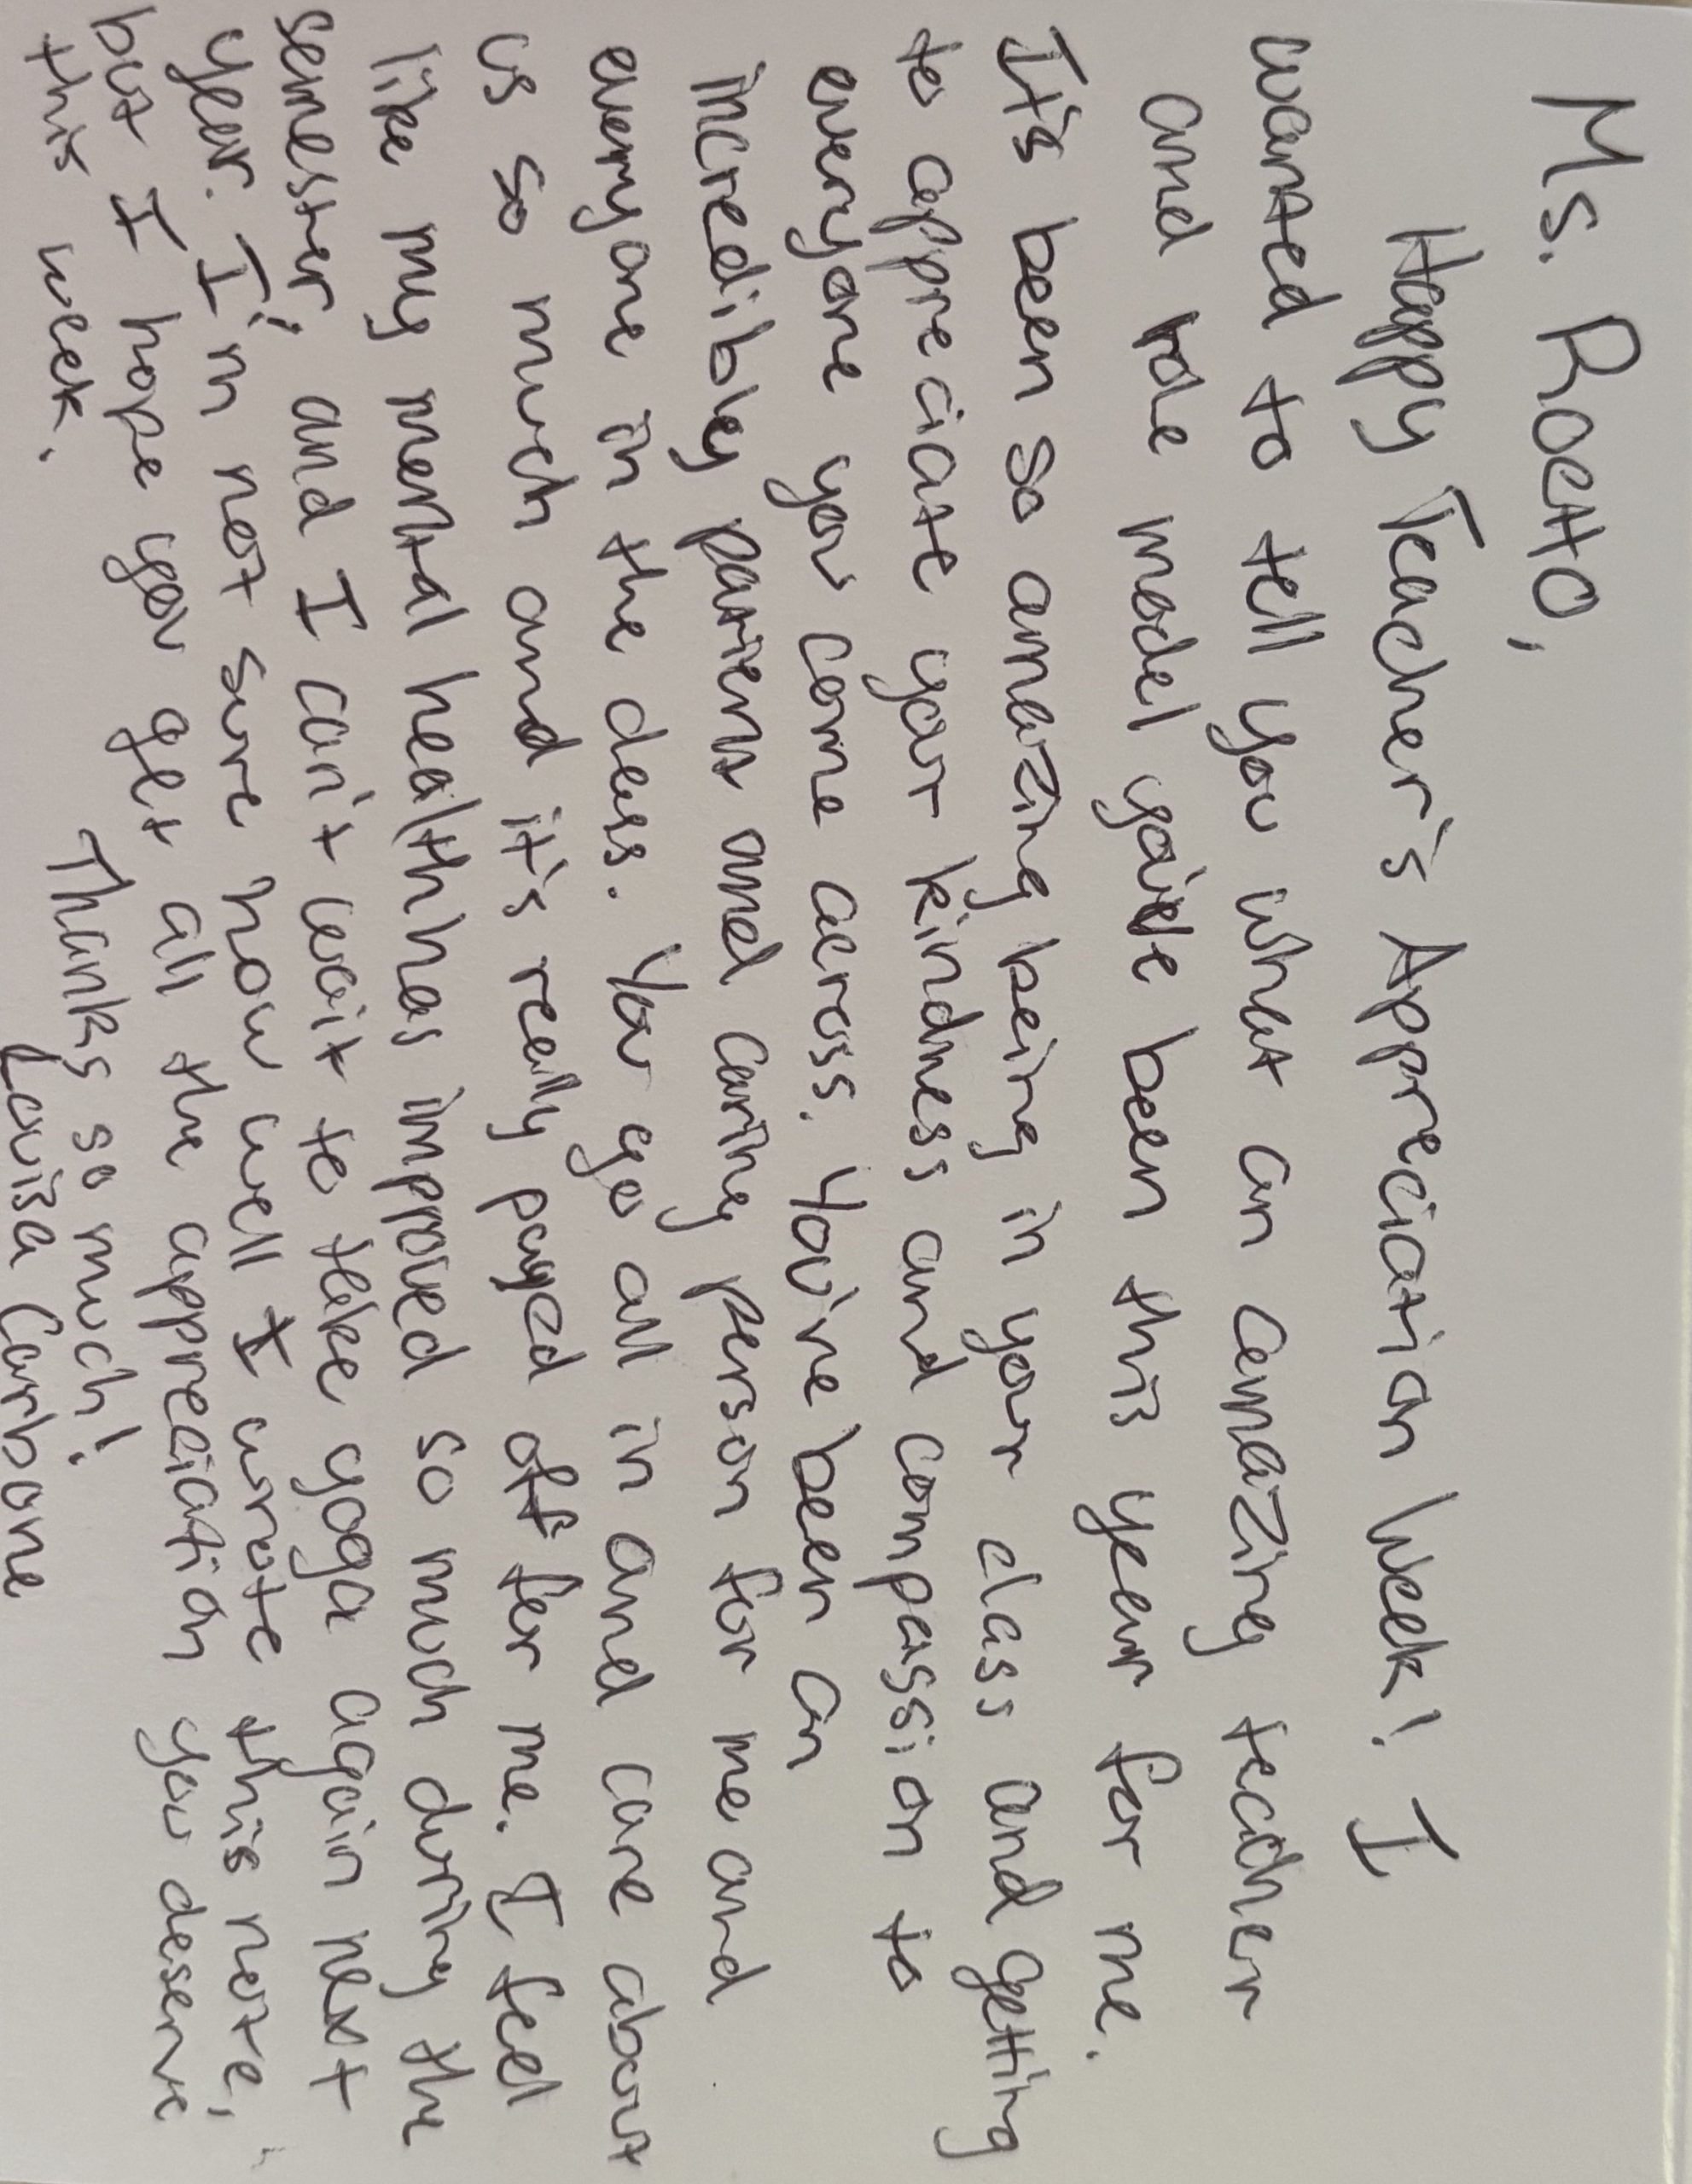 Ms. Roetto,
Happy Teacher's Appreciation Week! I
wanted to tell you what an amazing teacher
and role model you've been this year for me.
It's been so amazing being in your class and getting
to appreciate your kindness and compassion to
everyone you come across. You've been an
incredibly patient and caring person for me and
everyone in the class. You go all in and care about
us so much and it's really payed off for me. I feel
like my mental health has improved so much during the
semester, and I can't wait to take yoga again next
year. I'm not sure how well I wrote this note,
but I hope you get all the appreciation you deserve
this week.
Thanks so much!
Louisa Carbone